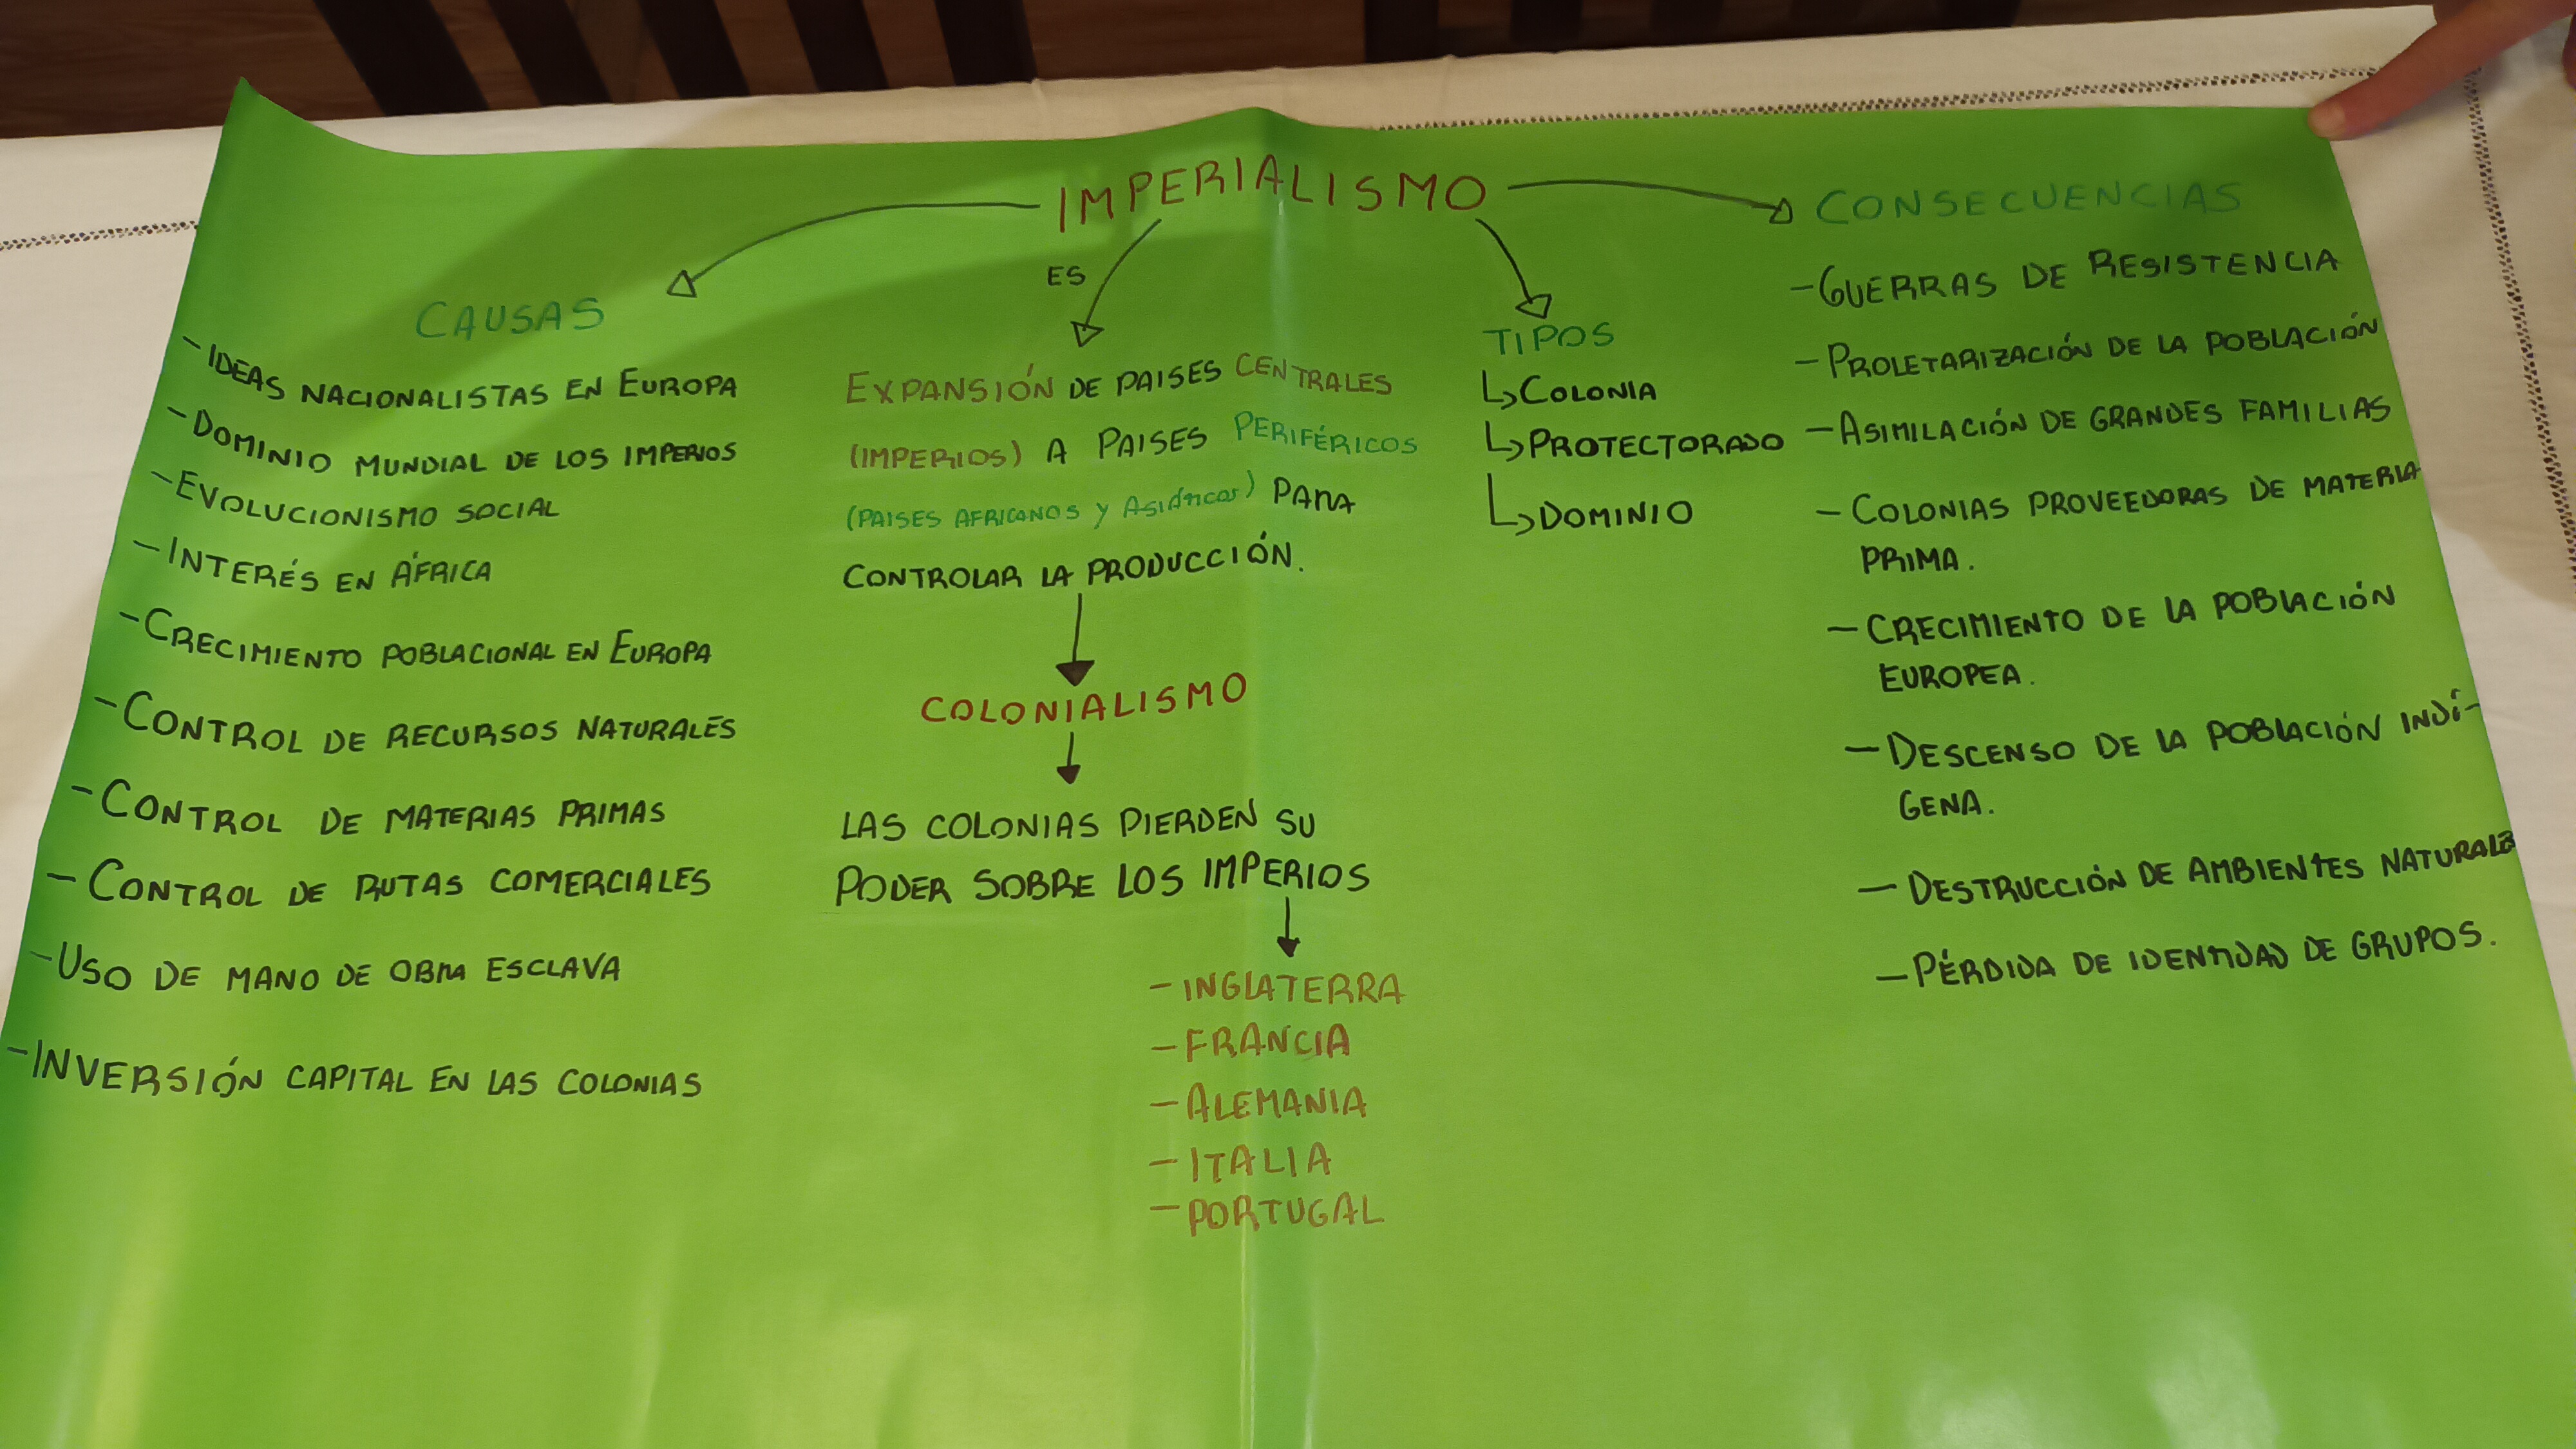 IMPERIALISMO
CAUSAS
- IDEAS NACIONALISTAS EN EUROPA
- DOMINIO MUNDIAL DE LOS IMPERIOS
- EVOLUCIONISMO SOCIAL
- INTERÉS EN ÁFRICA
- CRECIMIENTO POBLACIONAL EN EUROPA
- CONTROL DE RECURSOS NATURALES
- CONTROL DE MATERIAS PRIMAS
- CONTROL DE RUTAS COMERCIALES
- USO DE MANO DE OBRA ESCLAVA
- INVERSIÓN CAPITAL EN LAS COLONIAS
ES
EXPANSIÓN DE PAISES CENTRALES
(IMPERIOS) A PAISES PERIFÉRICOS
(PAISES AFRICANOS Y ASIÁTICOS) PARA
CONTROLAR LA PRODUCCIÓN.
COLONIALISMO
LAS COLONIAS PIERDEN SU
PODER SOBRE LOS IMPERIOS
- INGLATERRA
- FRANCIA
- ALEMANIA
- ITALIA
- PORTUGAL
TIPOS
COLONIA
PROTECTORADO
DOMINIO
CONSECUENCIAS
- GUERRAS DE RESISTENCIA
- PROLETARIZACIÓN DE LA POBLACIÓN
- ASIMILACIÓN DE GRANDES FAMILIAS
- COLONIAS PROVEEDORAS DE MATERIA
PRIMA.
- CRECIMIENTO DE LA POBLACIÓN
EUROPEA.
- DESCENSO DE LA POBLACIÓN INDÍ-
GENA.
- DESTRUCCIÓN DE AMBIENTES NATURALES
- PÉRDIDA DE IDENTIDAD DE GRUPOS.